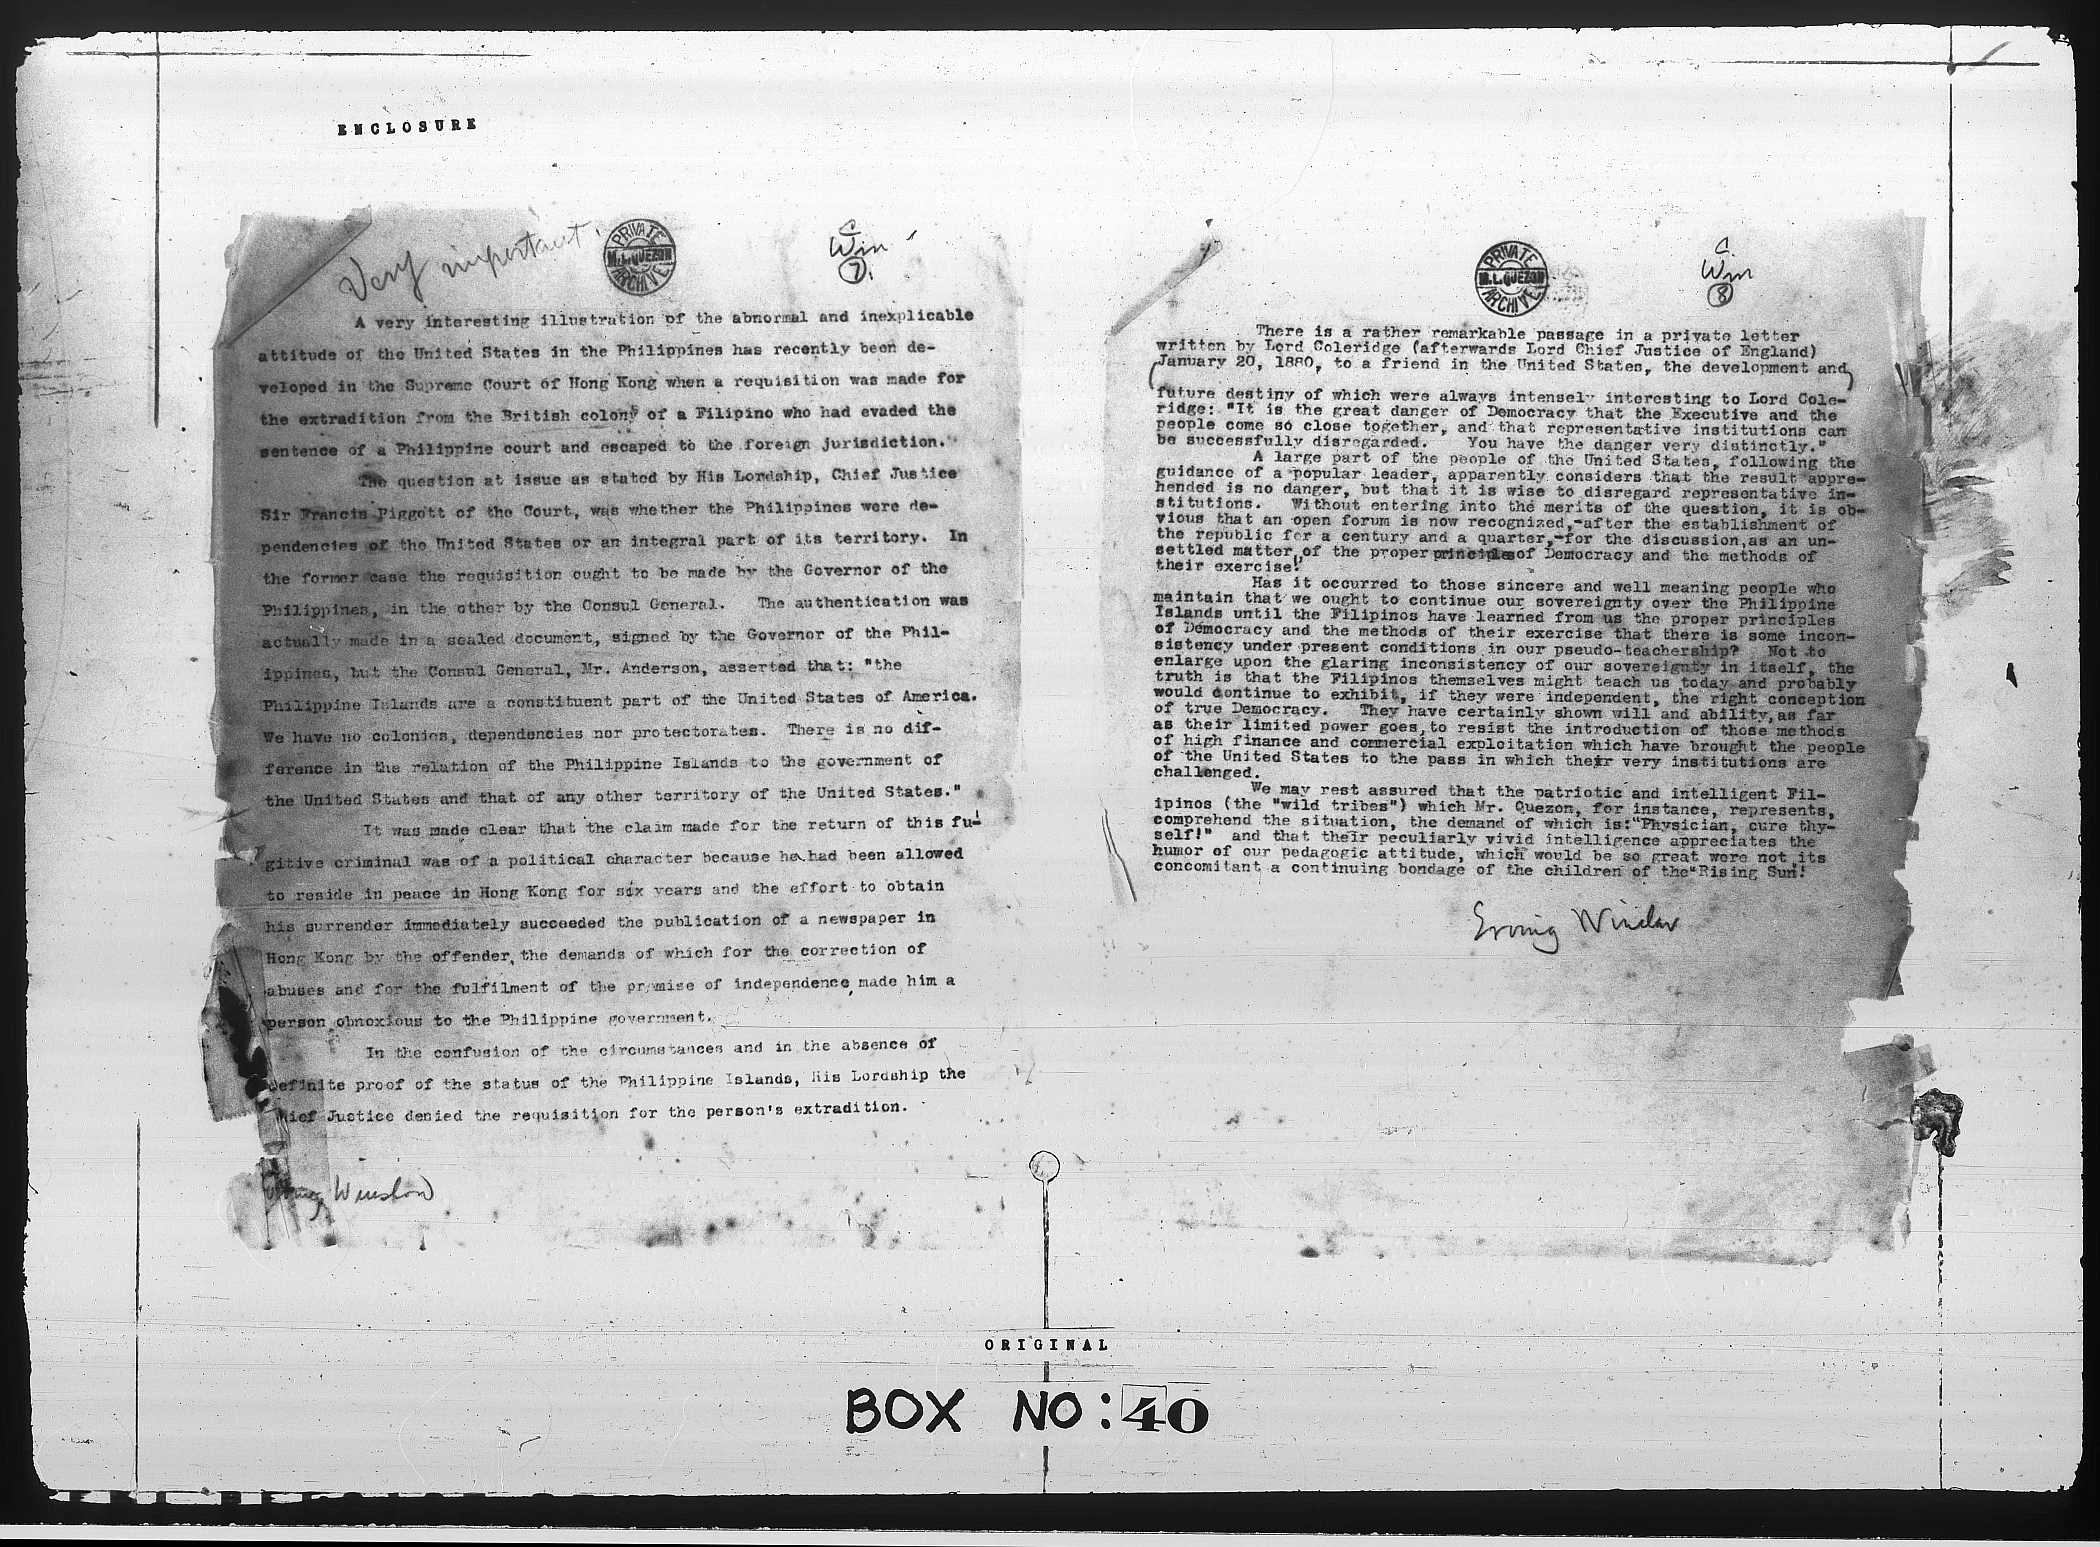 ENCLOSURE
Very important.
PRIVATE
M.L.QUEZON
ARCHIVE
C
Win
7.
A very interesting illustration of the abnormal and inexplicable
attitude of the United States in the Philippines has recently been de-
veloped in the Supreme Court of Hong Kong when a requisition was made for
the extradition from the British colony of a Filipino who had evaded the
sentence of a Philippine court and escaped to the foreign jurisdiction.
The question at issue as stated by His Lordship, Chief Justice
Sir Francis Piggott of the Court, was whether the Philippines were de-
pendencies of the United States or an integral part of its territory. In
the former case the requisition ought to be made by the Governor of the
Philippines, in the other by the Consul General. The authentication was
actually made in a sealed document, signed by the Governor of the Phil-
ippines, but the Consul General, Mr. Anderson, asserted that: "the
Philippine Islands are a constituent part of the United States of America.
We have no colonies, dependencies nor protectorates. There is no dif-
ference in the relation of the Philippine Islands to the government of
the United States and that of any other territory of the United States."
It was made clear that the claim made for the return of this fu-
gitive criminal was of a political character because he had been allowed
to reside in peace in Hong Kong for six years and the effort to obtain
his surrender immediately succeeded the publication of a newspaper in
Hong Kong by the offender, the demands of which for the correction of
abuses and for the fulfilment of the promise of independence, made him a
person obnoxious to the Philippine government.
In the confusion of the circumstances and in the absence of
definite proof of the status of the Philippine Islands, His Lordship the
hief Justice denied the requisition for the person's extradition.
Winslow
PRIVATE
M.L.QUEZON
ARCHIVE
C
Win
8
There is a rather remarkable passage in a private letter
written by Lord Coleridge (afterwards Lord Chief Justice of England)
January 20, 1880, to a friend in the United States, the development and
future destiny of which were always intensely interesting to Lord Cole-
ridge: "It is the great danger of Democracy that the Executive and the
people come so close together, and that representative institutions can
be successfully disregarded. You have the danger very distinctly."
A large part of the people of the United States, following the
guidance of a popular leader, apparently considers that the result appre-
hended is no danger, but that it is wise to disregard representative in-
stitutions. Without entering into the merits of the question, it is ob-
vious that an open forum is now recognized,-after the establishment of
the republic for a century and a quarter,-for the discussion,as an un-
settled matter, of the proper principles of Democracy and the methods of
their exercise!"
Has it occurred to those sincere and well meaning people who
maintain that we ought to continue our sovereignty over the Philippine
Islands until the Filipinos have learned from us the proper principles
of Democracy and the methods of their exercise that there is some incon-
sistency under present conditions in our pseudo-teachership? Not to
enlarge upon the glaring inconsistency of our sovereignty in itself, the
truth is that the Filipinos themselves might teach us today and probably
would continue to exhibit, if they were independent, the right conception
of true Democracy. They have certainly shown will and ability,as far
as their limited power goes, to resist the introduction of those methods
of high finance and commercial exploitation which have brought the people
of the United States to the pass in which their very institutions are
challenged.
We may rest assured that the patriotic and intelligent Fil-
ipinos (the "wild tribes") which Mr. Quezon, for instance, represents,
comprehend the situation, the demand of which is:"Physician, cure thy-
self!" and that their peculiarly vivid intelligence appreciates the
humor of our pedagogic attitude, which would be so great were not its
concomitant a continuing bondage of the children of the"Rising Sun!
Erving Winslow
ORIGINAL
BOX NO: 40